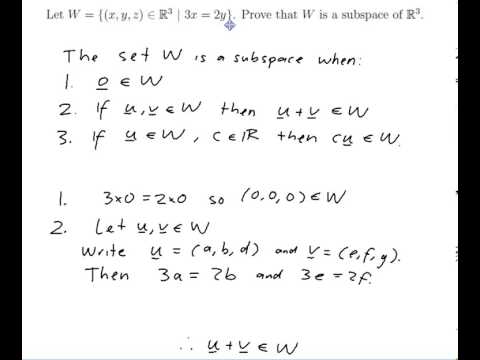 Let W = {(x, y, z) ∈ ℝ³ | 3x = 2y}. Prove that W is a subspace of ℝ³.
The set W is a subspace when:
1. 0 ∈ W
2. If u, v ∈ W then u + v ∈ W
3. If u ∈ W, c ∈ ℝ then cu ∈ W.
1. 3×0 = 2×0 so (0, 0, 0) ∈ W
2. Let u, v ∈ W
Write u = (a, b, d) and v = (e, f, g).
Then 3a = 2b and 3e = 2f.
∴ u + v ∈ W